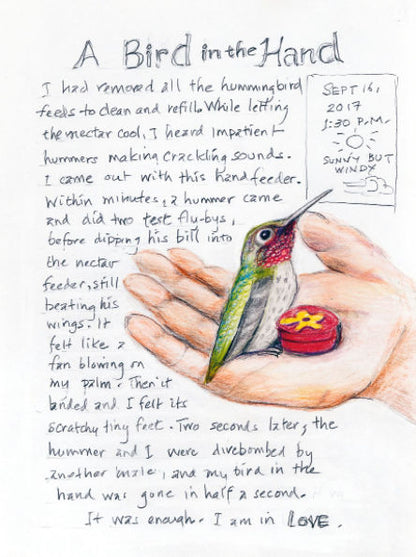 A Bird in the Hand
I had removed all the hummingbird
feeds to clean and refill. While letting
the nectar cool, I heard impatient
hummers making crackling sounds.
I came out with this hand feeder.
Within minutes, a hummer came
and did two test flu-bys,
before dipping his bill into
the nectar
feeder, still
beating his
wings. It
felt like a
fan blowing on
my palm. Then it
landed and I felt its
scratchy tiny feet. Two seconds later, the
hummer and I were divebombed by
another male, and my bird in the
hand was gone in half a second.
It was enough. I am in LOVE.
SEPT 16,
2017
1:30 P.M.
SUNNY BUT
WINDY